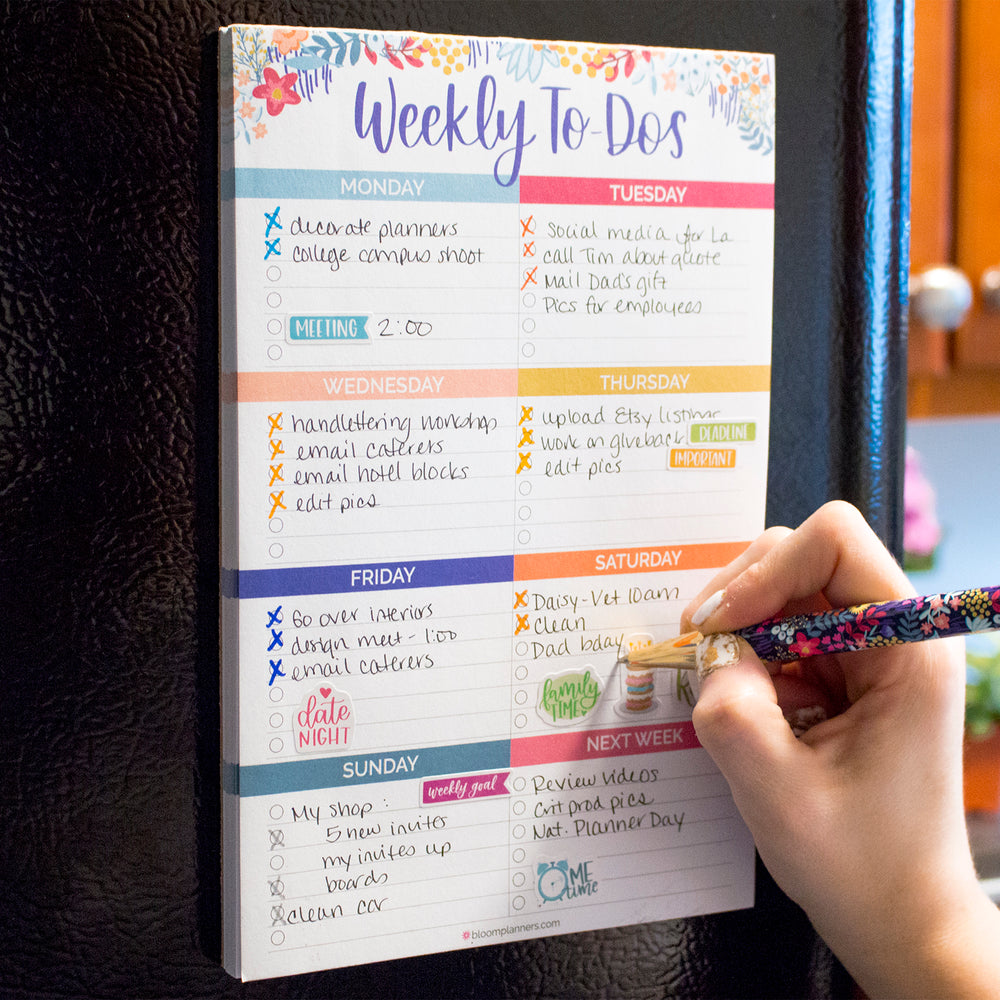 Weekly To-Dos
MONDAY
decorate planners
college campus shoot
MEETING 2:00
TUESDAY
Social media for La
call Tim about quote
Mail Dad's gift
Pics for employees
WEDNESDAY
handlettering workshop
email caterers
email hotel blocks
edit pics
THURSDAY
upload Etsy
work on giveback DEADLINE
IMPORTANT
edit pics
FRIDAY
Go over interiors
design meet - 1:00
email caterers
date
NIGHT
SATURDAY
Daisy-Vet 10am
Clean
Dad bday
family
TIME
SUNDAY
weekly goal
My shop:
5 new invites
my invites up
boards
clean car
NEXT WEEK
Review Videos
Crit prod pics
Nat. Planner Day
ME
time
bloomplanners.com